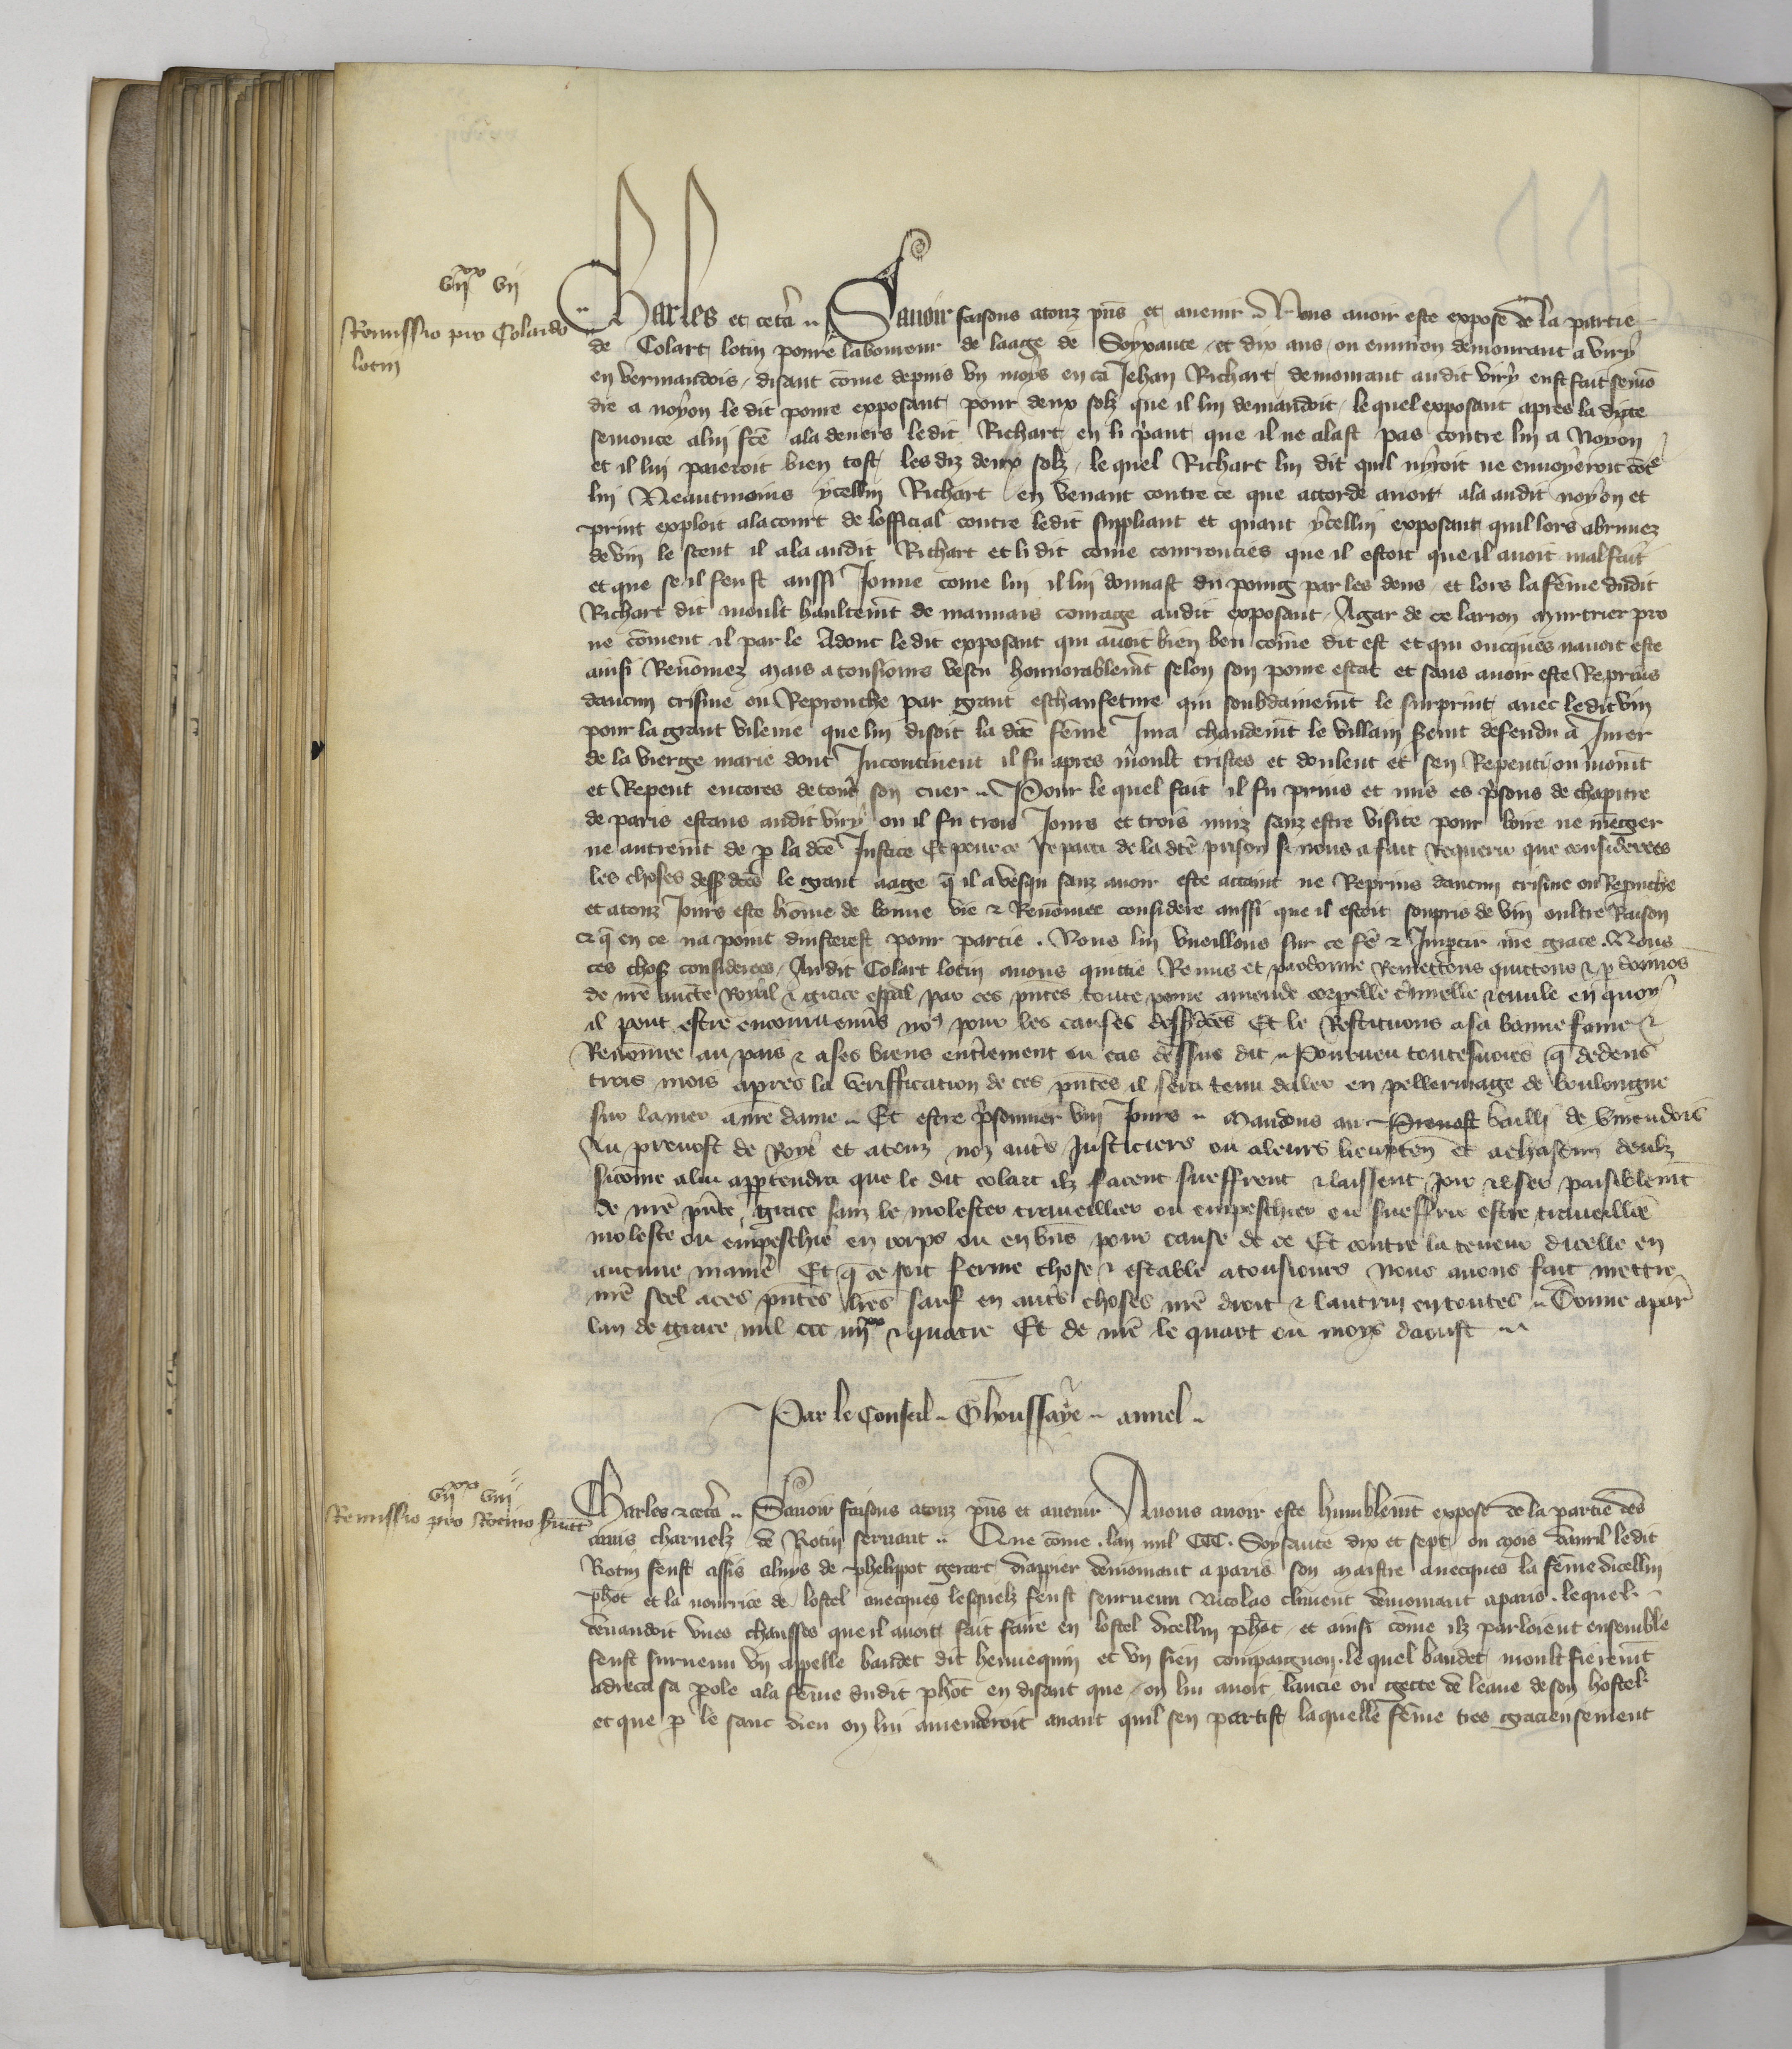 vii^xx vii
Remissio pro Colardo
lotin
Charles et cetã .. Sauoir faisons atouz pñs et auenir .. Nous auoir este expose de la partie
de Colart lotin poure laboureur de laage de Soyxante et dix ans ou enuiron demourant a viry
en vermandois disant cõme depuis vn moys en ca Jehan Richart demourant audit viry eust fait semõ
dre a noyon le dit poure exposant pour deux solz que il lui demandoit le quel exposant apres la dicte
semonce alui fcẽ ala deuers ledit Richart en li pant que il ne alast pas contre lui a Noyon
et il lui paieroit bien tost les diz deux solz le quel Richart lui dit quil nyroit ne enuoyeroit cõtᵉ
lui Neantmoins ycellui Richart en venant contre ce que accorde auoit ala audit noyon et
print exploit alacourt de lofficial contre ledit suppliant et quant ycellui exposant quil lors abruuez
de vin le sceut il ala audit Richart et li dit cõme courrouciés que il estoit que il auoit mal fait
et que se il feust aussi Jonne cõme lui il lui donnast du poing par les dens et lors la fẽme dudit
Richart dit moult haultemt de mauuais courage audit exposant Agar de ce larron murtrier pro
ne cõment il parle Adont ledit exposant qui auoit bien beu cõme dit est et qui oncques nauoit este
ainsi Renõmez mais atousiours vescu honnorablemt selon son poure estat et sans auoir este Reprins
daucun crisme ou Reprouche par grant eschaufeture qui soubdainemt le surprint auec ledit vin
pour la grant vilenie que lui disoit la dcẽ fẽme Jura chaudemt le villain serment defendu a Jurer
de la vierge marie dont Jncontinent il fu apres moult tristes et doulent et sen Repenti ou momt
et Repent encores de tout son cuer .. Pour le quel fait il fu prins et mis es psons de chapitre
de paris estans audit viry ou il fu trois Jours et trois nuiz sanz estre visite pour boire ne mẽgier
ne autremt de p la dcẽ Justice Et pource Je parti de la dtẽ prison si nous a fait Requerir que considerees
les choses dessdcẽs le grant aage q̃ il a vesqu sanz auoir este actaint ne Reprins daucun crisme ou Reprouche
et atouz Jours este hõme de bonne vie & Renõmee considere aussi que il estoit soupris de vin oultre Raison
& q̃ en ce na point dinterest pour partie . Nous lui vueillons sur ce fẽ & Jmpartir nrẽ grace . Nous
ces choses considerees / Audit Colart lotin auons quittie Remis et pardonne Remettons quittons & pdonnõs
de nrẽ aucte Royal & grace espal par ces pñtes toute peine amende corpelle c̃iminelle & ciuile en quoy
il peut estre encouru enuˢ noꝰ pour les causes dessdcẽs Et le Restituons a sa bonne fame &
Renõmee au pais & a ses biens entierement ou cas dessus dit .. Pourueu toutesuoies q̃ dedens
trois mois apres la verifficacion de ces pñtes il sera tenu daler en pellerinage de boulongne
sur lamer a nrẽ dame .. Et estre psonnier viii Jours .. Mandons au Preuost bailli de vmendois
Au preuost de Roye et atouz noz autˢ Justiciers ou aleurs lieuxteñ et achascun deulz
sicõme alui apptendra que le dit colart ilz facent sueffrent & laissent Joir & vser paisiblemt
de nrẽ pñte grace sanz le molester trauaillier ou empeschier ou suffrir estre trauaillie
moleste ou empeschie en corps ou en bñs pour cause de ce Et contre la teneur dicelle en
aucune manie Et q̃ ce soit ferme chose & estable atousiours Nous auons fait mettre
nrẽ seel aces pñtes lrẽs sauf en autˢ choses nrẽ droit & lautruy en toutes .. Donne apar
lan de grace mil ccc iiii^xx & quatre Et de nrẽ le quart ou moys daoust ...
Par le Conseil .. Ghoussaye .. aunel ..
vii^xx viii
Remissio pro Rotino sruãt
Charles & cetã .. Sauoir faisons atouz pñs et auenir Anous auoir este humblemt expose de la partie des
amis charnelz de Rotin seruant .. Que cõme . lan mil CCC . Soyxante dix et sept ou mois dauril ledit
Rotin feust assis aluys de phelippot gerart drappier demourant a paris son maistre auecques la fẽme dicellui
phot et la nourrice de lostel auecques lesquelz feust seuruenu Nicolas climent demourant a paris . lequel
demandoit vnes chausses que il auoit fait faire en lostel dicellui phot et ainsi cõme ilz parloient ensemble
feust suruenu vn appelle baudet dit hennequin et vn sien compaignon . le quel baudet moult fieremt
adreca sa pole ala fẽme dudit phot en disant que on lui auoit lancie ou gecte de leaue de son hostel
et que p le sanc dieu on lui amenderoit auant quil sen partist laquelle fẽme tres gracieusement